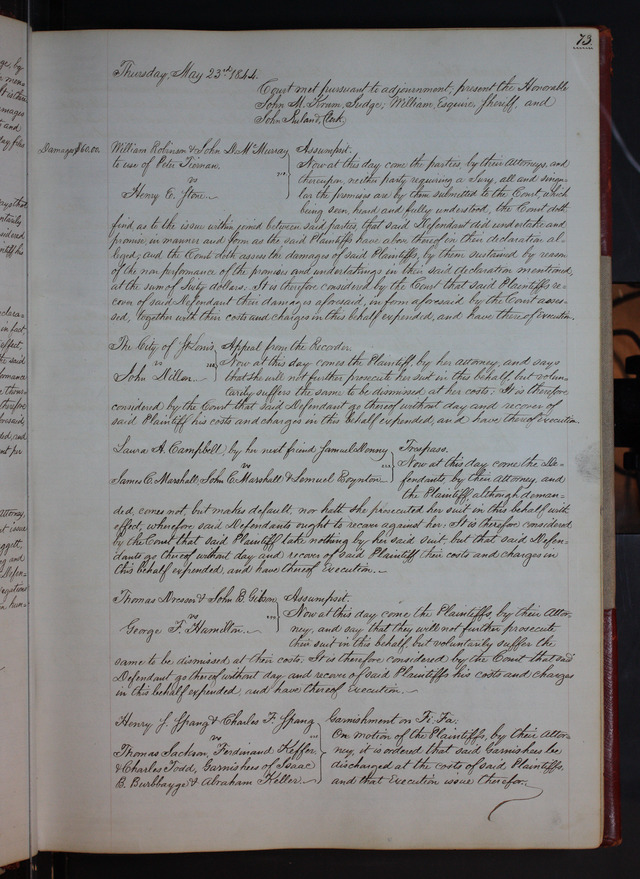 73.
Thursday, May 23rd 1844.
Court met pursuant to adjournment; present the Honorable
John M. Krum, Judge; William, Esquire, Sheriff, and
John Ruland, Clerk.
Damages $60.00.
William Robinson & John D. McMurray
to use of Peter Tiernan
vs
Henry C. Stone
Assumpsit.
Now at this day come the parties by their Attorneys, and
thereupon, neither party requiring a Jury, all and singu-
lar the premises are by them submitted to the Court, which
being seen, heard, and fully understood, the Court doth
find, as to the issue within joined between said parties, that said Defendant did undertake and
promise, in manner and form as the said Plaintiffs have above thereof in their declaration al-
leged; and the Court doth assess the damages of said Plaintiffs, by them sustained by reason
of the non performance of the promises and undertakings in their said declaration mentioned,
at the sum of Sixty dollars. It is therefore considered by the Court that said Plaintiffs re-
cover of said Defendant their damages aforesaid, in form aforesaid by the Court asses-
sed, together with their costs and charges in this behalf expended, and have thereof Execution.
The City of St Louis
vs
John Dillon
Appeal from the Recorder.
Now at this day comes the Plaintiff, by her attorney, and says
that she will not further prosecute her suit in this behalf, but volun-
tarily suffers the same to be dismissed at her costs. It is therefore
considered by the Court that said Defendant go thereof without day and recover of
said Plaintiff his costs and charges in this behalf expended, and have thereof Execution.
Laura A. Campbell, by her next friend Samuel Denny
vs
James C. Marshall, John E. Marshall & Lemuel Boynton
Trespass.
Now at this day come the De-
fendants by their Attorney, and
the Plaintiff, although deman-
ded, comes not, but makes default, nor hath she prosecuted her suit in this behalf with
effect, wherefore said Defendants ought to recover against her: It is therefore considered
by the Court that said Plaintiff take nothing by her said suit, but that said Defen-
dants go thereof without day and recover of said Plaintiff their costs and charges in
this behalf expended, and have thereof Execution.
Thomas Dresser & John B. Gibson
vs
George F. Hamilton
Assumpsit.
Now at this day come the Plaintiffs, by their Attor-
ney, and say that they will not further prosecute
their suit in this behalf, but voluntarily suffer the
same to be dismissed at their costs. It is therefore considered by the Court that said
Defendant go thereof without day and recover of said Plaintiffs his costs and charges
in this behalf expended, and have thereof Execution.
Henry S. Spang & Charles F. Spang
vs
Thomas Jackson, Ferdinand Keffer
& Charles Todd, Garnishees of Isaac
B. Burbbayge & Abraham Keller
Garnishment on Fi. Fa.
On motion of the Plaintiffs, by their Attor-
ney, it is ordered that said Garnishees be
discharged at the costs of said Plaintiffs,
and that Execution issue therefor.